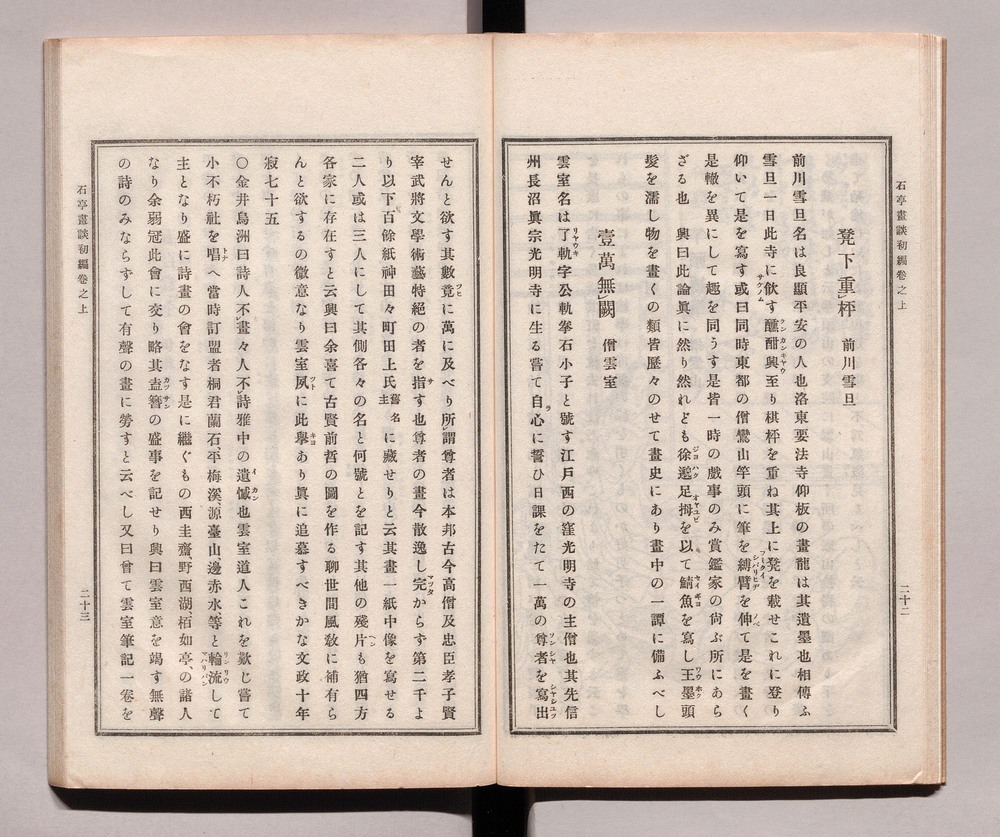 石亭畫談初編卷之上
二十二
凳下重枰　前川雪旦
前川雪旦名は良顯平安の人也洛東要法寺仰板の畫龍は其遺墨也相傳ふ
雪旦一日此寺に飮す醺酣興至り棋枰を重ね其上に凳を載せこれに登り
仰いて是を寫す或曰同時東都の僧鸞山竿頭に筆を縛臂を伸て是を畫く
是轍を異にして趣を同うす是皆一時の戲事のみ賞鑑家の尙ぶ所にあら
ざる也　興曰此論眞に然り然れども徐邈足拇を以て鯖魚を寫し王墨頭
髮を濡し物を畫くの類皆歷々のせて畫史にあり畫中の一譚に備ふべし
壹萬無闕　僧雲室
雲室名は了軌字公軌拳石小子と號す江戸西の窪光明寺の主僧也其先信
州長沼眞宗光明寺に生る嘗て自心に誓ひ日課をたて一萬の尊者を寫出
せんと欲す其數竟に萬に及べり所謂尊者は本邦古今高僧及忠臣孝子賢
宰武將文學術藝特絶の者を指す也尊者の畫今散逸し完からす第二千よ
り以下百餘紙神田々町田上氏舊名主に藏せりと云其畫一紙中像を寫せる
二人或は三人にして其側各々の名と何號とを記す其他の殘片も猶四方
各家に存在すと云興曰余喜て古賢前哲の圖を作る聊世間風敎に補有ら
んと欲するの徵意なり雲室夙に此擧あり眞に追慕すべきかな文政十年
寂七十五
〇金井烏洲曰詩人不畫々人不詩雅中の遺憾也雲室道人これを歎じ嘗て
小不朽社を唱へ當時訂盟者桐君蘭石平梅溪源臺山、邊赤水、等と輪流して
主となり盛に詩畫の會をなす是に繼ぐもの西圭齋、野西湖、栢如亭、の諸人
なり余弱冠此會に交り略其盍簪の盛事を記せり興曰雲室意を竭す無聲
の詩のみならすして有聲の畫に勞すと云べし又曰曾て雲室筆記一卷を
石亭畫談初編卷之上
二十三